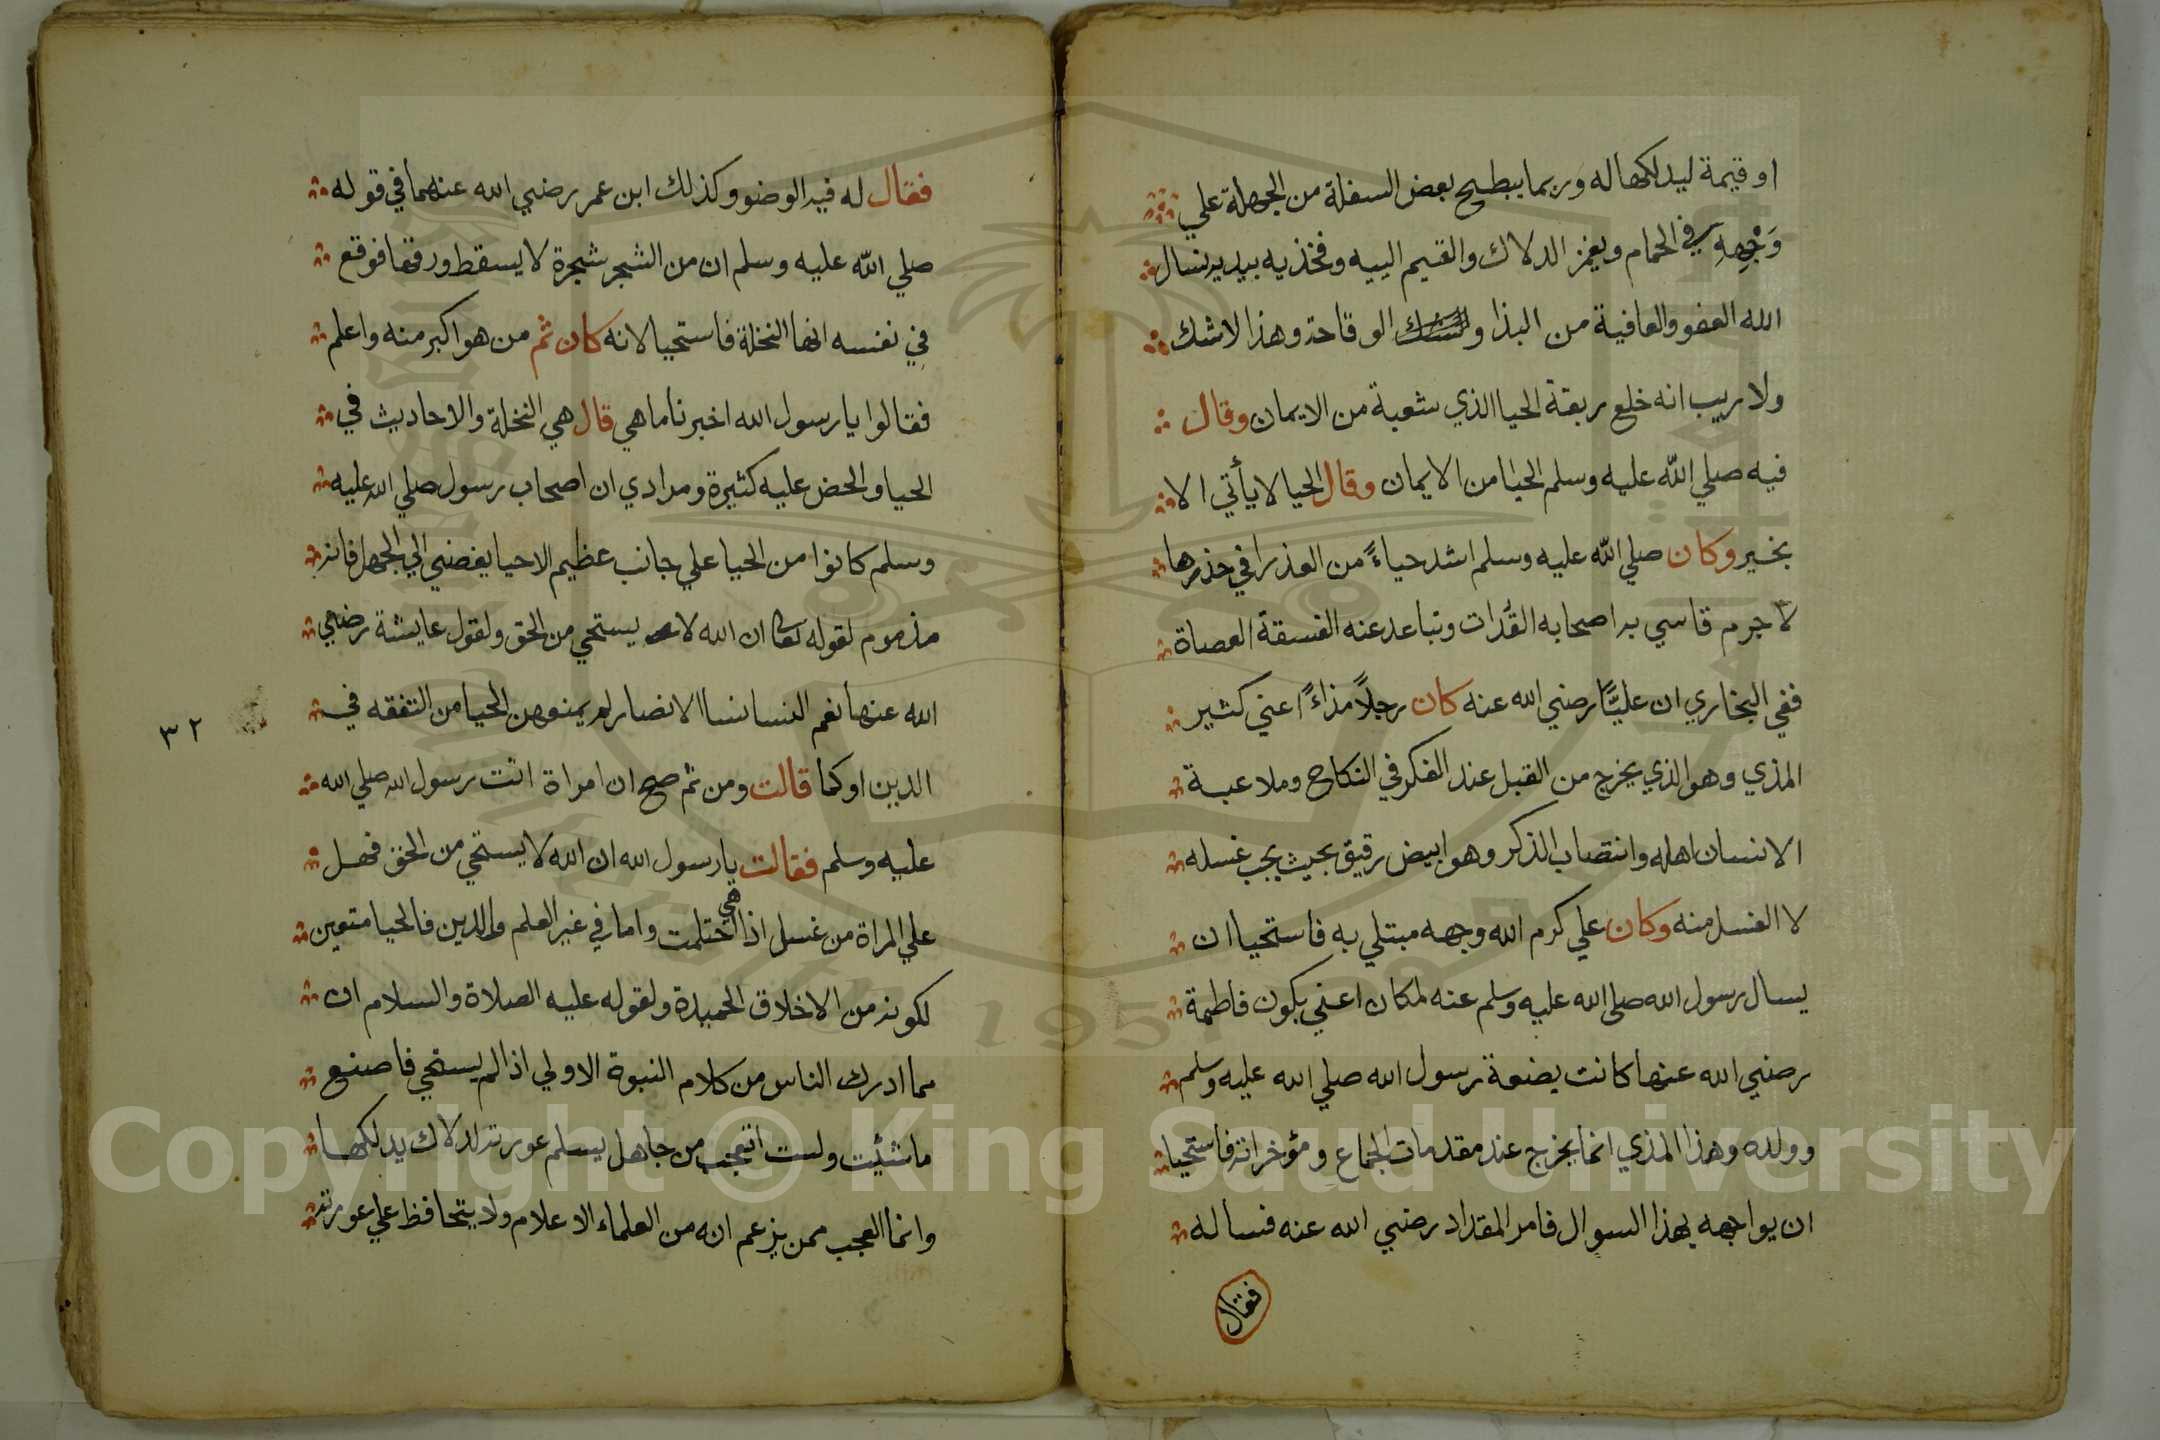 او قيمة ليدلكها له وربما يبطح بعض السفلة من الجهلة علي
وَجْهِهِ في الحمام ويغمز الدلاك والقيم اليه وفخذيه بيديه نسال
الله العفو والعافية من البذا و الوقاحة وهذا لاشك
ولا ريب انه خلع ربقة الحيا الذي شعبة من الايمان وقال
فيه صلي الله عليه وسلم الحيا من الايمان وقال الحيا لا يأتي الا
بخير وكان صلي الله عليه وسلم اشد حياءً من العذرا في خذرها
لا جرم قاسي به اصحابه القُدات وتباعد عنه الفسقة العصاة
ففي البخاري ان عليًّا رضي الله عنه كان رجلاً مذاءً اعني كثير
المذي وهو الذي يخرج من القبل عند الفكر في النكاح وملاعبة
الانسان اهله وانتصاب الذكر وهو ابيض رقيق بحيث يجب غسله
لا الغسل منه وكان علي كرم الله وجهه مبتلي به فاستحيا ان
يسال رسول الله صلى الله عليه وسلم عنه لمكان اعني بكون فاطمة
رضي الله عنها كانت بضعة رسول الله صلي الله عليه وسلم
وولده وهذا المذي انما يخرج عند مقدمات الجماع ومؤخراته فاستحيا
ان يواجهه بهذا السوال فامر المقداد رضي الله عنه فساله
فقال
فقال له فيه الوضو وكذلك ابن عمر رضي الله عنهما في قوله
صلي الله عليه وسلم ان من الشجر شجرة لا يسقط ورقها فوقع
في نفسه انها النخلة فاستحيا لانه كان ثم من هو اكبر منه واعلم
فقالوا يا رسول الله اخبرنا ما هي قال هي النخلة والاحاديث في
الحيا والحض عليه كثيرة ومرادي ان اصحاب رسول صلي الله عليه
وسلم كانوا من الحيا علي جانب عظيم الا حيا يفضي الي الجهل فانه
مذموم لقوله تعالى ان الله لا يستحي من الحق ولقول عايشة رضي
الله عنها نعم النسا نسا الانصار لم يمنعهن الحيا من التفقه في
الدين او كما قالت ومن ثم صح ان امراة اتت رسول الله صلي الله
عليه وسلم فقالت يا رسول الله ان الله لا يستحي من الحق فهل
علي المراة من غسل اذا هي احتلمت واما في غير العلم والدين فالحيا متعين
لكونه من الاخلاق الحميدة ولقوله عليه الصلاة والسلام ان
مما ادرك الناس من كلام النبوة الاولي اذا لم يستحي فاصنع
ما شئيت ولست اتعجب من جاهل يسلم عورته لدلاك يدلكها
وانما العجب ممن يزعم انه من العلماء الاعلام ولا يتحافظ علي عورته
٣٢
Copyright © King Saud University
1957